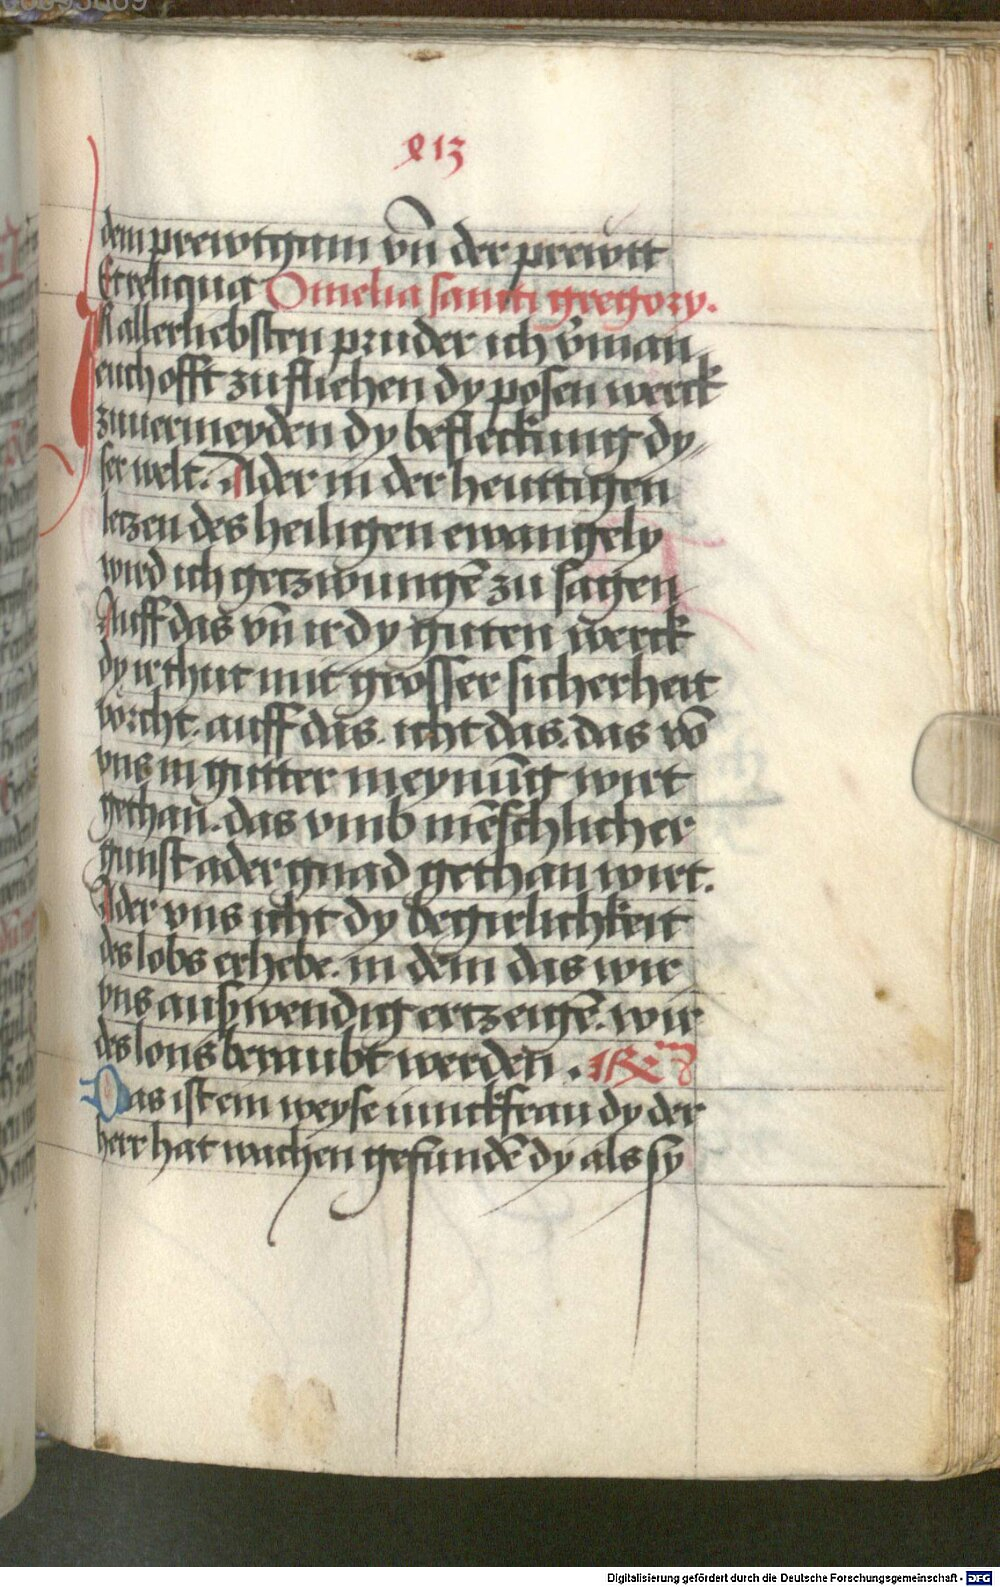 213
dem prewtgam vn̄ der prewtt
Et reliqua Omelia sancti gregory.
IR allerliebsten pruder ich v̄man
euch offt zu fliehen dy posen werck
zuuermeyden dy befleckung dy„
ser welt. Ader in der heuttigen
letzen des heiligen ewangely
wird ich getzwungē zu sagen
Auff das vn̄ ir dy guten werck
dy ir thut mit grosser sicherheit
vorcht. auff das. icht das. das vō
vns in gutter meynūg wirt
gethan. das vmb mēschlicher
gunst ader gnad gethan wirt.
Ader vns icht dy begirlichkeit
des lobs erhebe. in dem das wir
vns auswendig ertzeigē. wir
des lons beraubt werden.
Das ist ein weyse iunckfrau dy der
herr hat wachen gefundē dy als sy
Digitalisierung gefördert durch die Deutsche Forschungsgemeinschaft - DFG